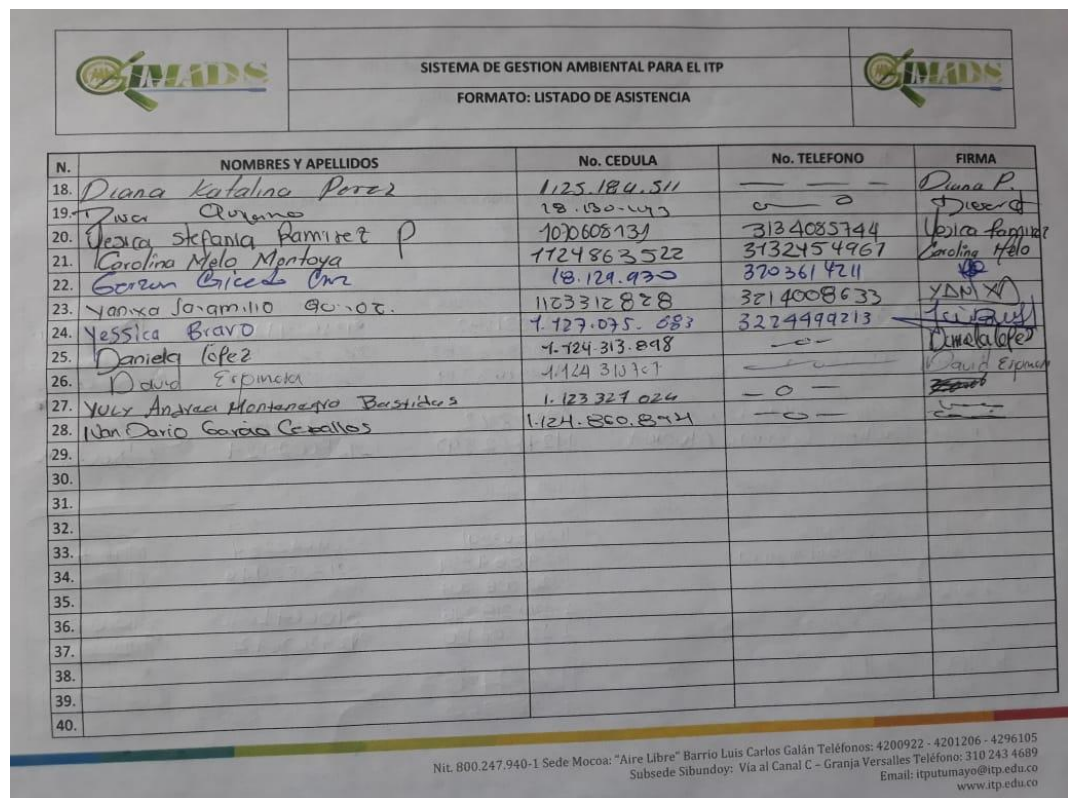 GIMADS
SISTEMA DE GESTION AMBIENTAL PARA EL ITP
FORMATO: LISTADO DE ASISTENCIA
GIMADS
N. NOMBRES Y APELLIDOS No. CEDULA No. TELEFONO FIRMA
18. Diana Katalina Perez 1.125.184.511 — — — Diana P.
19. 18.130.
20. Yesica Stefania Ramirez P 1070608131 3134085744 Yesica Ramirez
21. Carolina Melo Montoya 1124863522 3132454967 Carolina Melo
22. 18.129.930 3203614211
23. Yanixa Jaramillo 1123312828 3214008633 YANIXA
24. Yessica Bravo 1.127.075.683 3224499213
25. Daniela López 1.124.313.898 —o— Daniela López
26. David Espinosa David
27. Yuly Andrea Montenegro Bastidas 1.123 327 024 — o —
28. Ivan Dario Garcia Ceballos 1.124.860.894 —o—
29.
30.
31.
32.
33.
34.
35.
36.
37.
38.
39.
40.
Nit. 800.247.940-1 Sede Mocoa: "Aire Libre" Barrio Luis Carlos Galán Teléfonos: 4200922 - 4201206 - 4296105
Subsede Sibundoy: Vía al Canal C – Granja Versalles Teléfono: 310 243 4689
Email: itputumayo@itp.edu.co
www.itp.edu.co